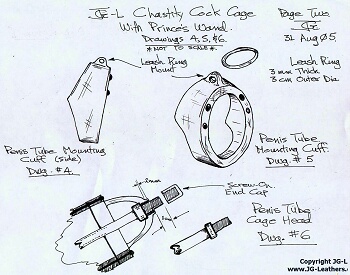 JG-L Chastity Cock Cage
With Prince's Wand.
Drawings 4, 5, &6.
*NOT TO SCALE*.
Page Two
31 Aug 05
Leash Ring
Mount
Leash Ring
3mm Thick
3cm Outer Dia.
Penis Tube Mounting
Cuff (side)
Dwg. #4.
Penis Tube
Mounting Cuff.
Dwg. #5
Screw-On
End Cap
Penis Tube
Cage Head
Dwg. #6
Copyright JG-L
www.JG-Leathers.